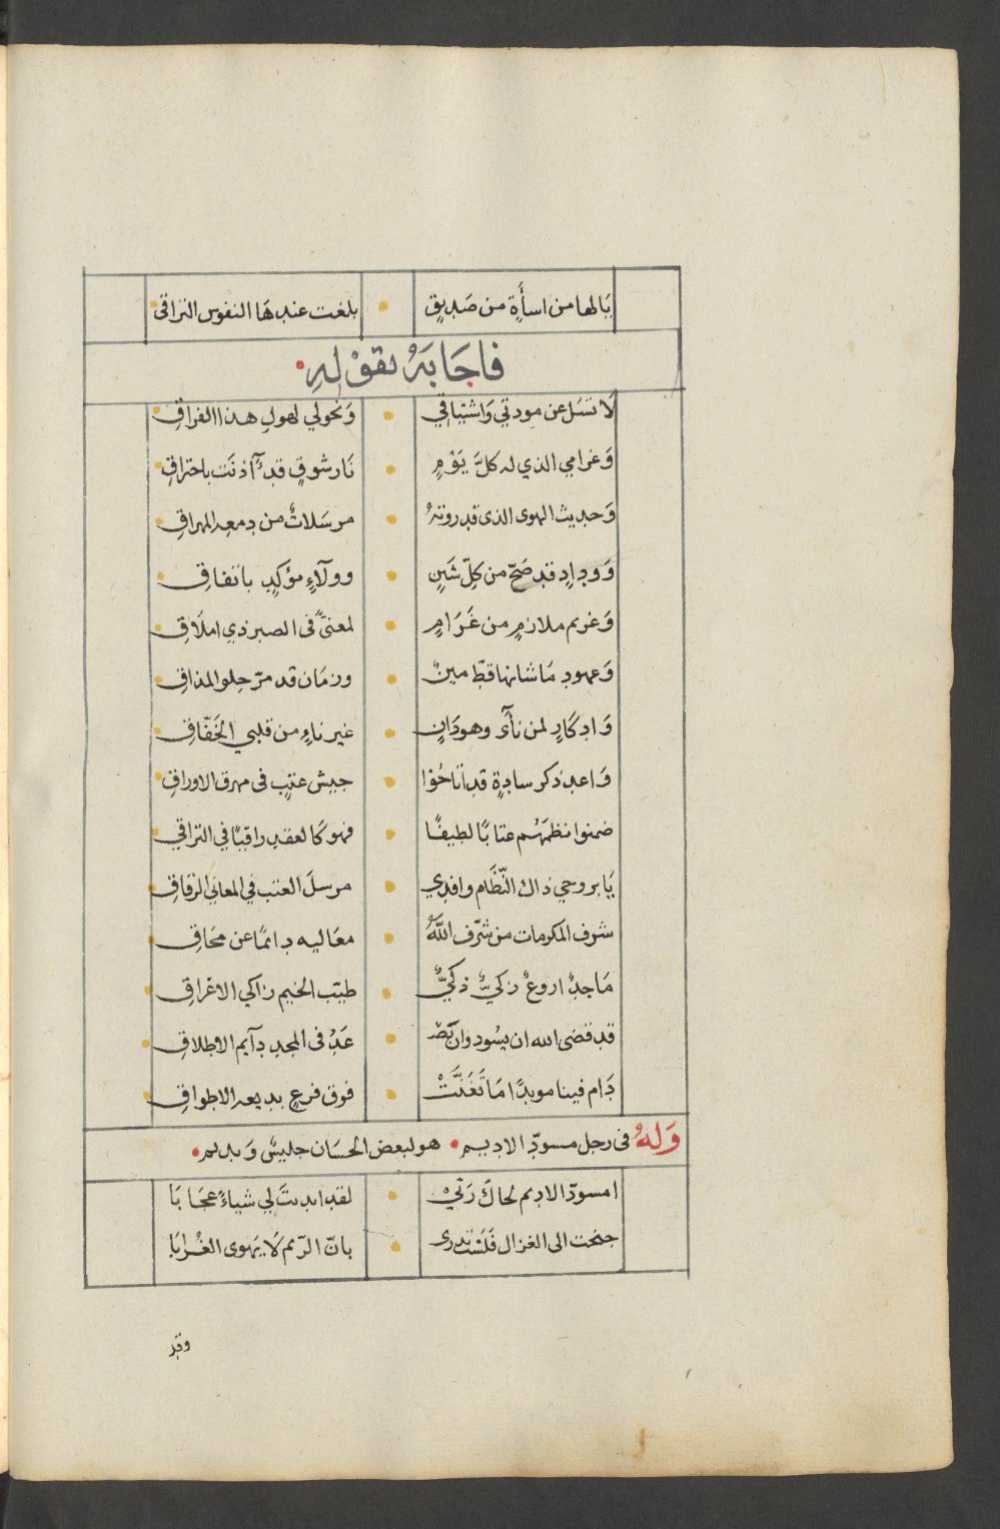 يَالها من اسأَةٍ من صَديقٍ • بلغت عندهَا النفوس التراقى
فاجَابَهُ بقوْلهِ
لا تسَل عن مودتي وَاشتياقي • وَنحولي لهولِ هذا الفراقِ
وَغرامي الذي له كلَّ يَوْمٍ • نَار شوقٍ قد آذنَت باحتراقِ
وَحديث الهوى الذى قد روتهُ • مرسَلاتٌ من دمعه المهراقِ
وَودادٍ قد صَحّ من كلّ شَينٍ • وولآءٍ مؤكدٍ باتفاقِ
وَغريم ملازمٍ من غَرَامٍ • لمعنىً فى الصبر ذي املَاقِ
وَعهود مَا شانها قطّ مينٌ • وزمَان قد مرّ حلو المذاقِ
وَادكَارٍ لمن نأَى وهو دَانٍ • غير ناءٍ من قلبي الخَفّاقِ
وَاعد ذكر سادةٍ قد أناخُوا • جيش عتبٍ فى مهرق الاوراقِ
ضمنوا نظمَهُم عتابًا لطيفًا • فهو كَالعقد راقيًا في التراقي
يَا بروحي ذاك النّظَام وافدي • مرسلَ العتب في المعاني الرقاقِ
شرف المكرمات من شرّف اللهُ • معَاليه دائمًا عن محَاقِ
مَاجدٌ اروعٌ زكيٌّ ذكيٌّ • طيّب الخيم زاكي الاعْرَاقِ
قد قضى الله ان يسُود وان يَصْـ • ـعَدُ فى المجد دآيم الاطلاقِ
دَام فينا مويدًا مَا تَغَنَّتْ • فوق فرعٍ بديعه الاطواقِ
وَلهُ فى رجل مسودّ الاديم • هو لبعض الحسَان جليسٌ وَنديم
امسودّ الاديم لحاكَ رَبّي • لقد ابديتَ لي شياءً عجَابَا
جنحت الى الغزال فَلَسْتَ تدرى • بانّ الرّيم لَا يَهوى الغُرَابَا
وقد